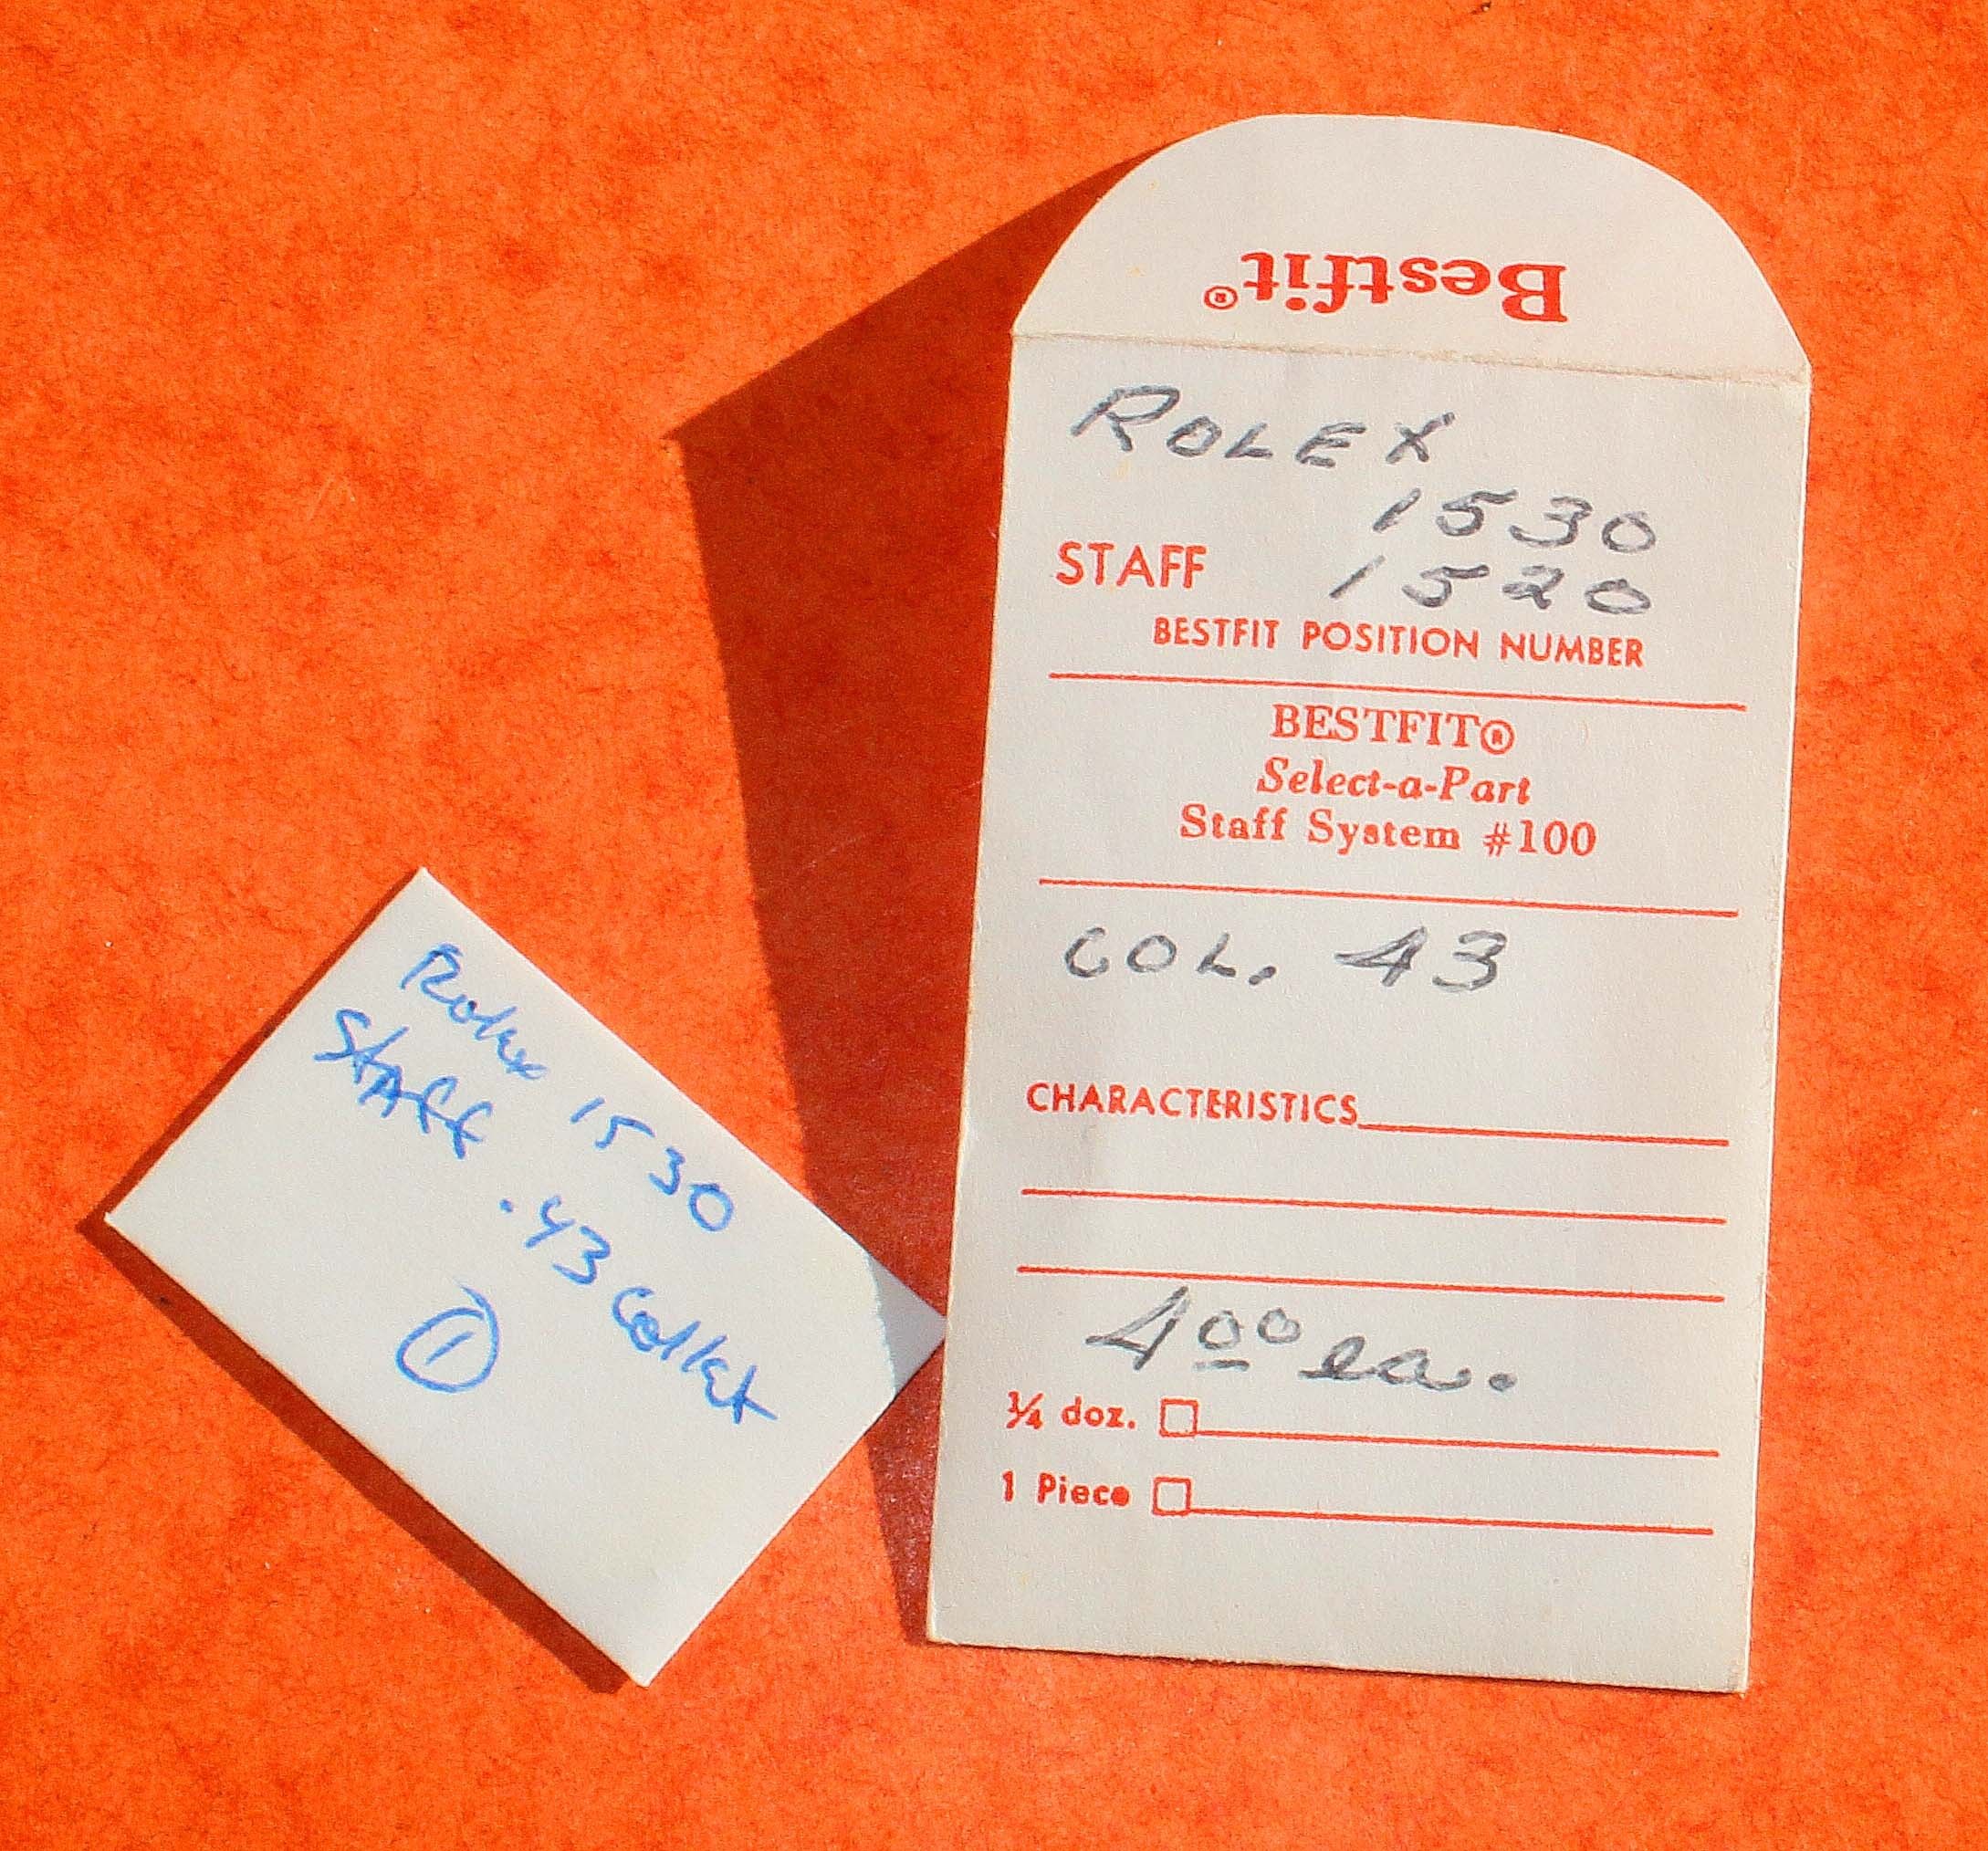 Bestfit®
ROLEX
1530
STAFF 1520
BESTFIT POSITION NUMBER
BESTFIT®
Select-a-Part
Staff System #100
COL. 43
CHARACTERISTICS
4 00 ea.
¼ doz.
1 Piece
Rolex 1530
Staff .43 Collet
1